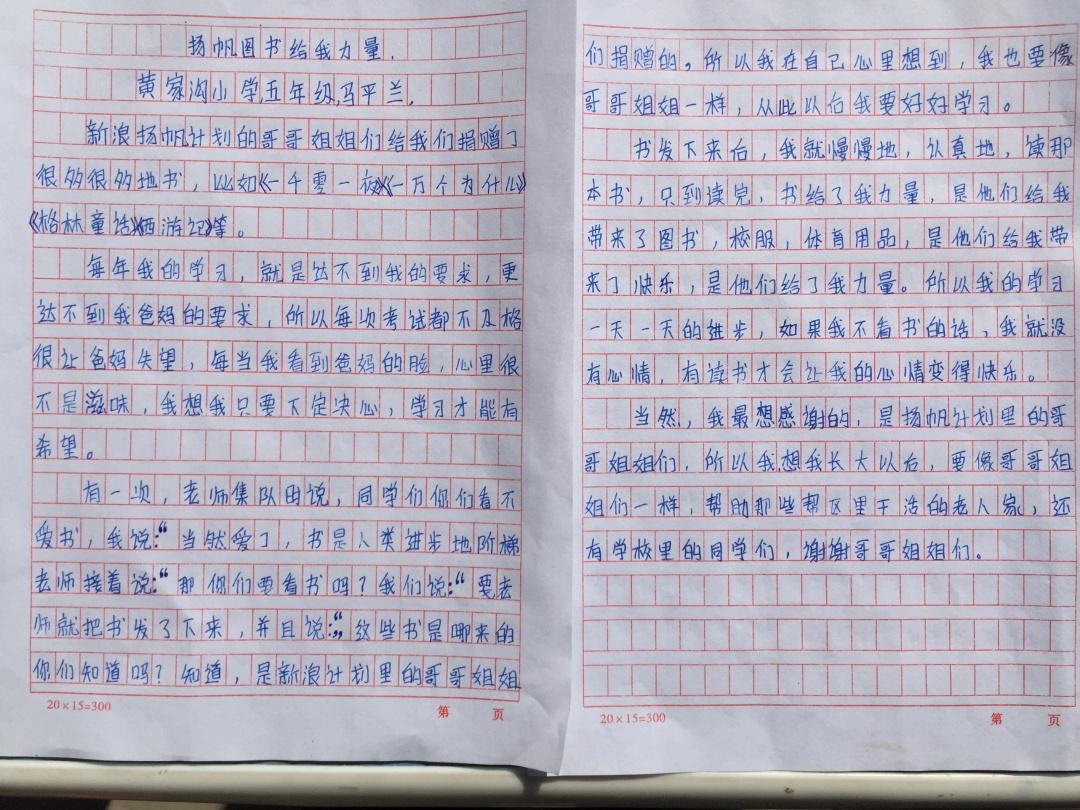 扬帆图书给我力量.
黄家沟小学,五年级,马平兰,
新浪扬帆计划的哥哥姐姐们给我们捐赠了
很多很多地书，比如《一千零一夜》《一万个为什么》
《格林童话》《西游记》等。
每年我的学习，就是达不到我的要求，更
达不到我爸妈的要求，所以每次考试都不及格
很让爸妈失望，每当我看到爸妈的脸，心里很
不是滋味，我想我只要下定决心，学习才能有
希望。
有一次，老师集队时说，同学们你们看不
爱书，我说:“当然爱了，书是人类进步地阶梯
老师接着说:“那你们要看书吗？我们说:“要,老
师就把书发了下来，并且说:“,这些书是哪来的
你们知道吗？知道，是新浪计划里的哥哥姐姐
20×15=300
第 页
们捐赠的，所以我在自己心里想到，我也要像
哥哥姐姐一样，从此以后我要好好学习。
书发下来台，我就慢慢地，认真地，读那
本书，只到读完，书给了我力量，是他们给我
带来了图书，校服，体育用品，是他们给我带
来了快乐，是他们给了我力量。所以我的学习
一天一天的进步，如果我不看书的话、我就没
有心情，有读书才会让我的心情变得快乐。
当然，我最想感谢的，是扬帆计划里的哥
哥姐姐们，所以我想我长大以后，要像哥哥姐
姐们一样，帮助那些帮区里干活的老人家，还
有学校里的同学们，谢谢哥哥姐姐们。
20×15=300
第 页